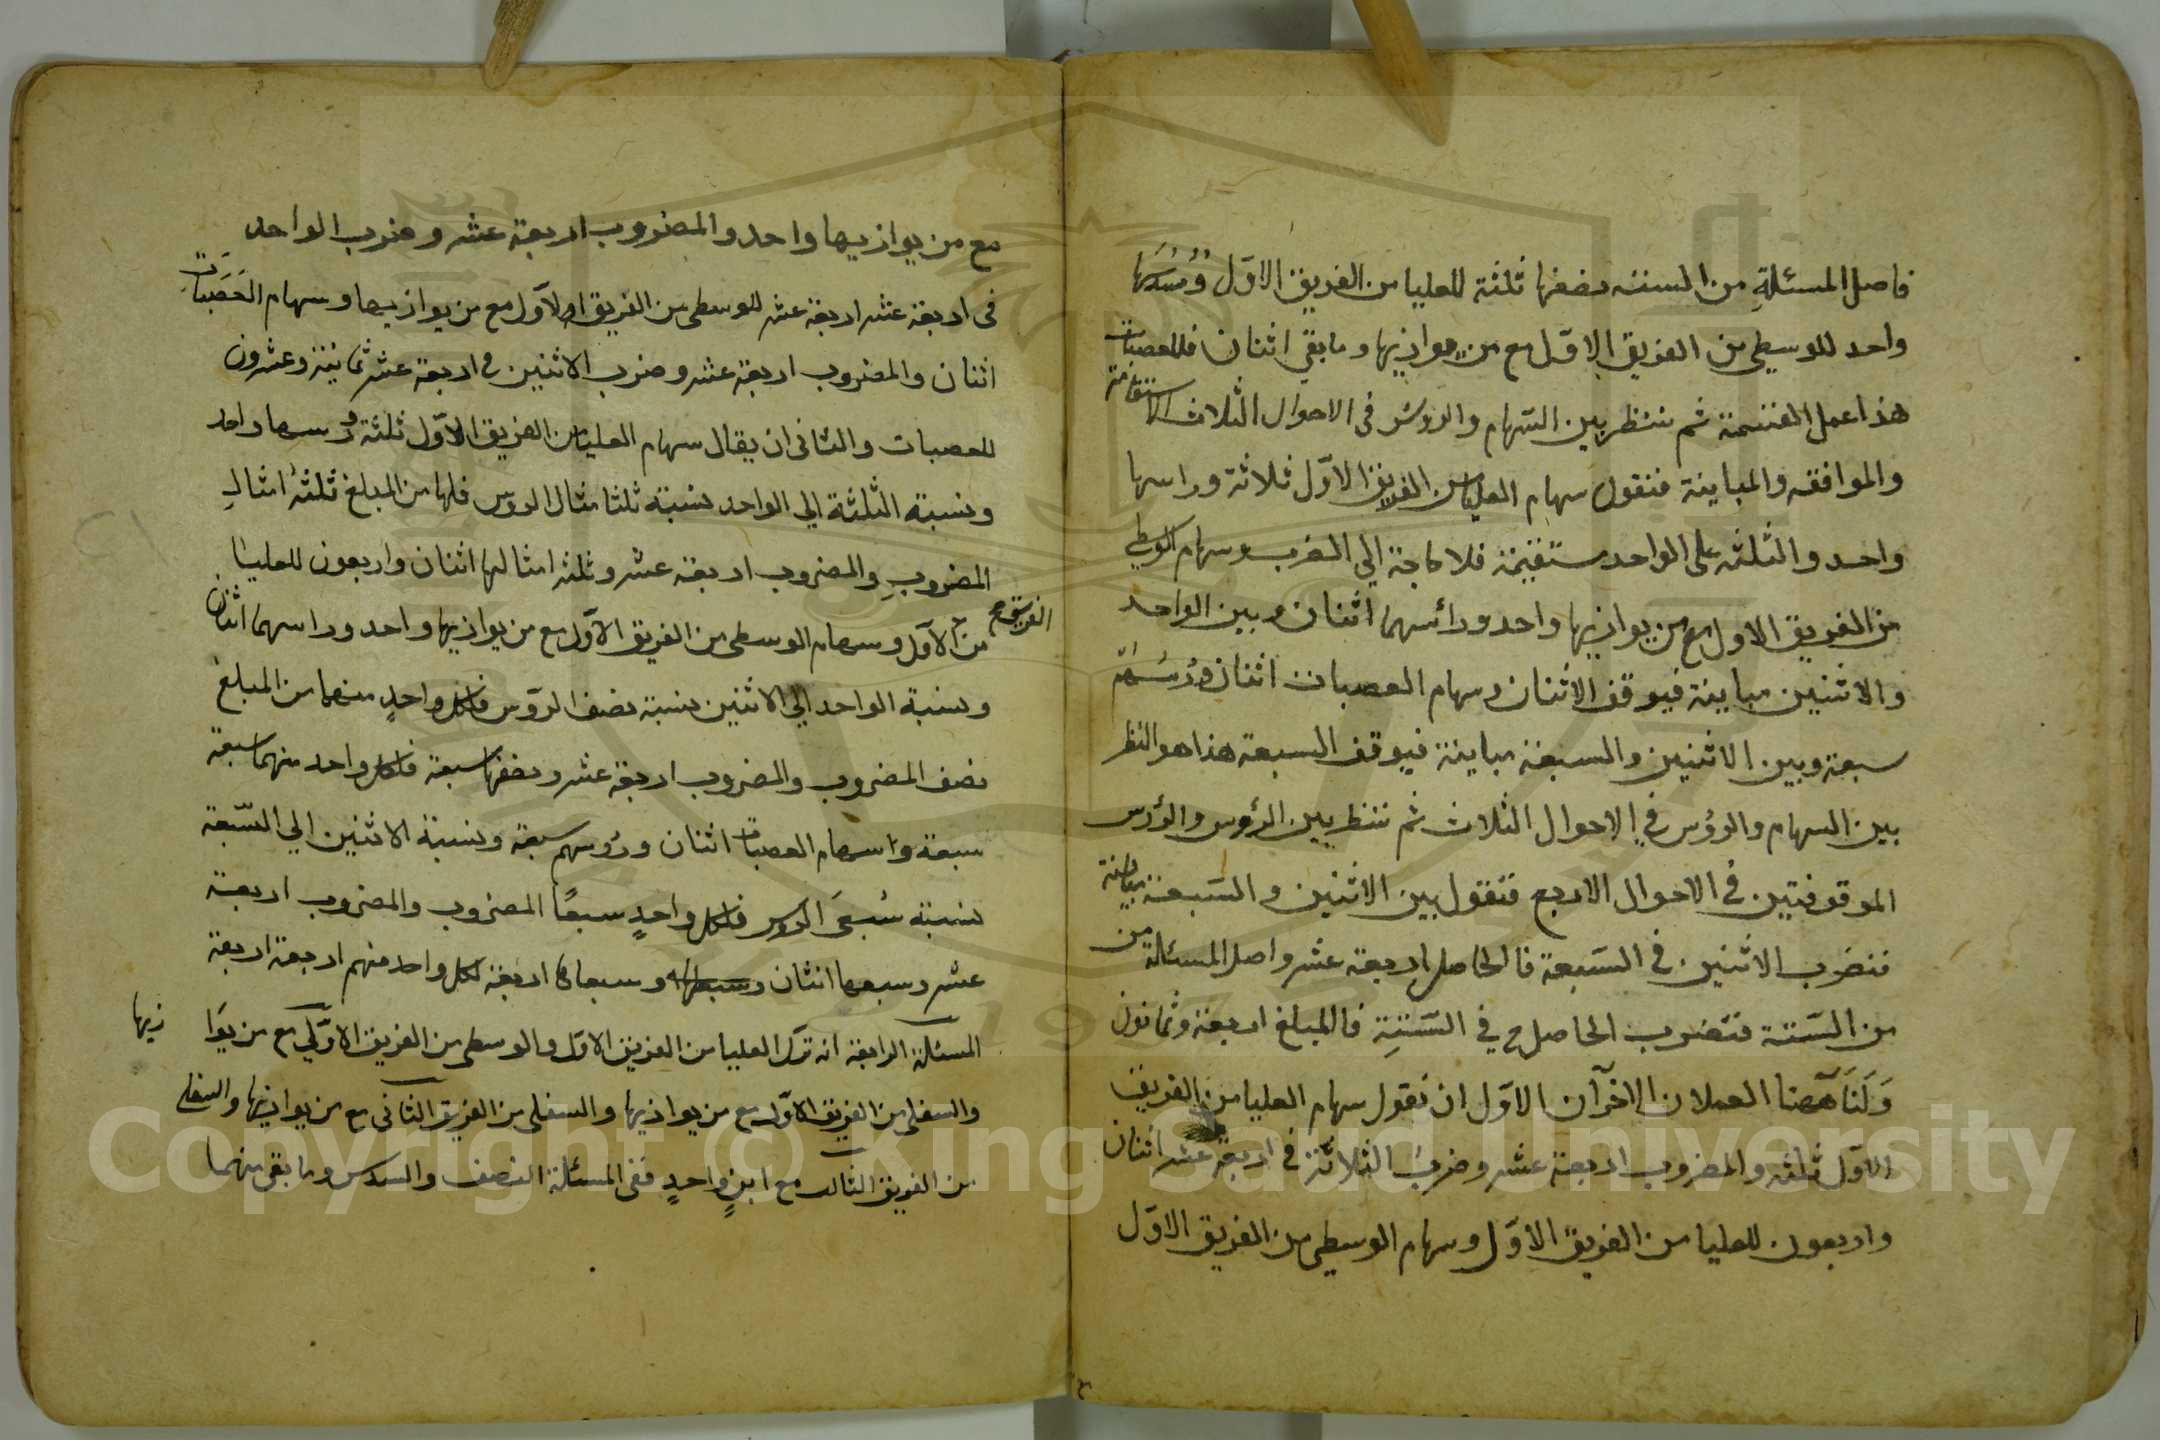 فاصل المسئلةِ من الستته نصفها ثلثة للعليا من الفريق الاوّل وُسُدُسَها
واحد للوسطي من الفريق الاوّل مع من يوازيها وما بقي اثنان فللعصبات
هذا عمل القسمة ثم ننظر بين السّهام والروس في الاحوال الثلاث الاستقامة
والموافقه والمباينة فنقول سهام العليا من الفريق الاوّل ثلاثة وراسها
واحد والثلثه على الواحد مستقيمة فلا حاجة الي الضرب وسهام الوسطي
من الفريق الاول مع من يوازيها واحد ورائسهما اثنان وبين الواحد
والاثنين مباينة فيوقف الاثنان وسهام العصبات اثنان ورُسُهُم
سبعة وبين الاثنين والسبعة مباينة فيوقف السبعة هذا هو النظر
بين السهام والرؤس في الاحوال الثلاث ثم ننظر بين الرؤس والرؤس
الموقوفتين في الاحوال الاربع فنقول بين الاثنين والسَبعة مباينة
فنضرب الاثنين في السَبعة فالحاصل اربعة عشر واصل المسئلة من
من السَتتة فنضرب الحاصل في السَتتِة فالمبلغ اربعة وثمانون
وَلَنَا هٓهنا العملان الاخرٓان الاوّل ان نقول سهام العليا من الفريق
الاوّل ثلثه والمضروب اربعة عشر وضربُ الثلاثة في اربعة عشر اثنان
واربعون للعليا من الفريق الاوّل وسهام الوسطي من الفريق الاوّل
مع من يوازيها واحد والمضروب اربعة عشر وضرب الواحد
في اربعة عشر اربعة عشر للوسطى من الفريق الاوّل مع من يوازيها وسهام العَصَبَات
اثنان والمضروب اربعة عشر وضرب الاثنين في اربعة عشر ثمانية وعشرون
للعصبات والثاني ان يقال سهام العليا من الفريق الاوّل ثلثة ورسها واحد
ونسبة الثلثة الي الواحد نسبة ثلثا مثال الروس فلها من المبلغ ثلثةُ امثالِ
المضروبِ والمضروب اربعة عشر وثلثه امثالها اثنان واربعون للعليا
من الفريق الاوّل وسهام الوسطى من الفريق الاوّل مع من يوازيها واحد وراسهما اثنان
ونسبة الواحد الي الاثنين نسبة نصف الروّس فلكل واحدٍ منهما من المبلغ
نصف المضروب والمضروب اربعة عشر ونصفها سبعة فلكل واحد منهما سبعة
سبعة وسهام العصبات اثنان ورُوسهم سبعة ونسبة الاثنين الي السّبعة
نسبة سُبعَى الروس فلكل واحدٍ سبعًا المضروب والمضروب اربعة
عشر وسبعها اثنان وسبعاها اربعة لكل واحد منهم اربعة اربعة
المسئلة الرابعة انه ترك العليا من الفريق الاوّل والوسطى من الفريق الاوّل مع من يوَا زيها
والسفلى من الفريق الاوّل مع من يوازيها والسفلى من الفريق الثاني مع من يوازيها والسفلى
من الفريق الثالث مع ابنٍ واحدٍ ففي المسئلة النصف والسدس وما بقى منهما